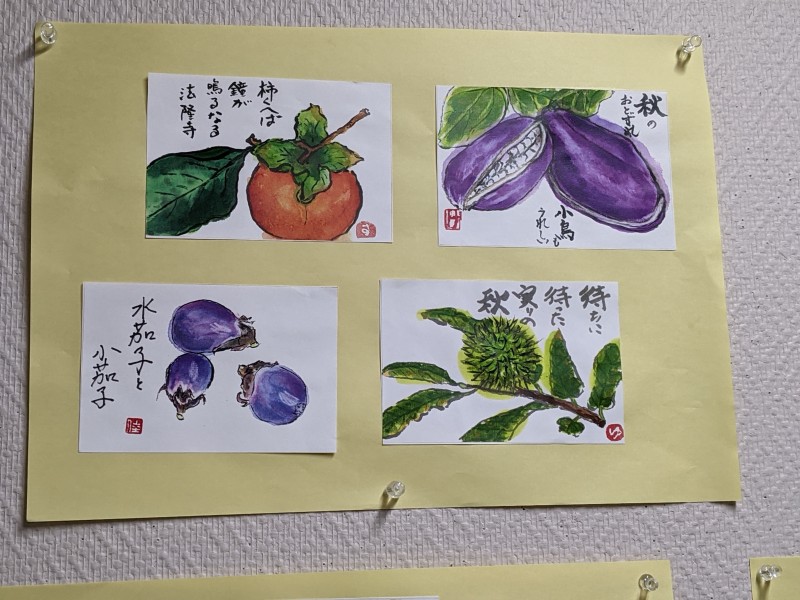 柿くへば
鐘が
鳴るなる
法隆寺
秋の
おとずれ
小鳥も
うれしい
水茄子と
小茄子
待ちに
待った
実りの
秋
ゆ